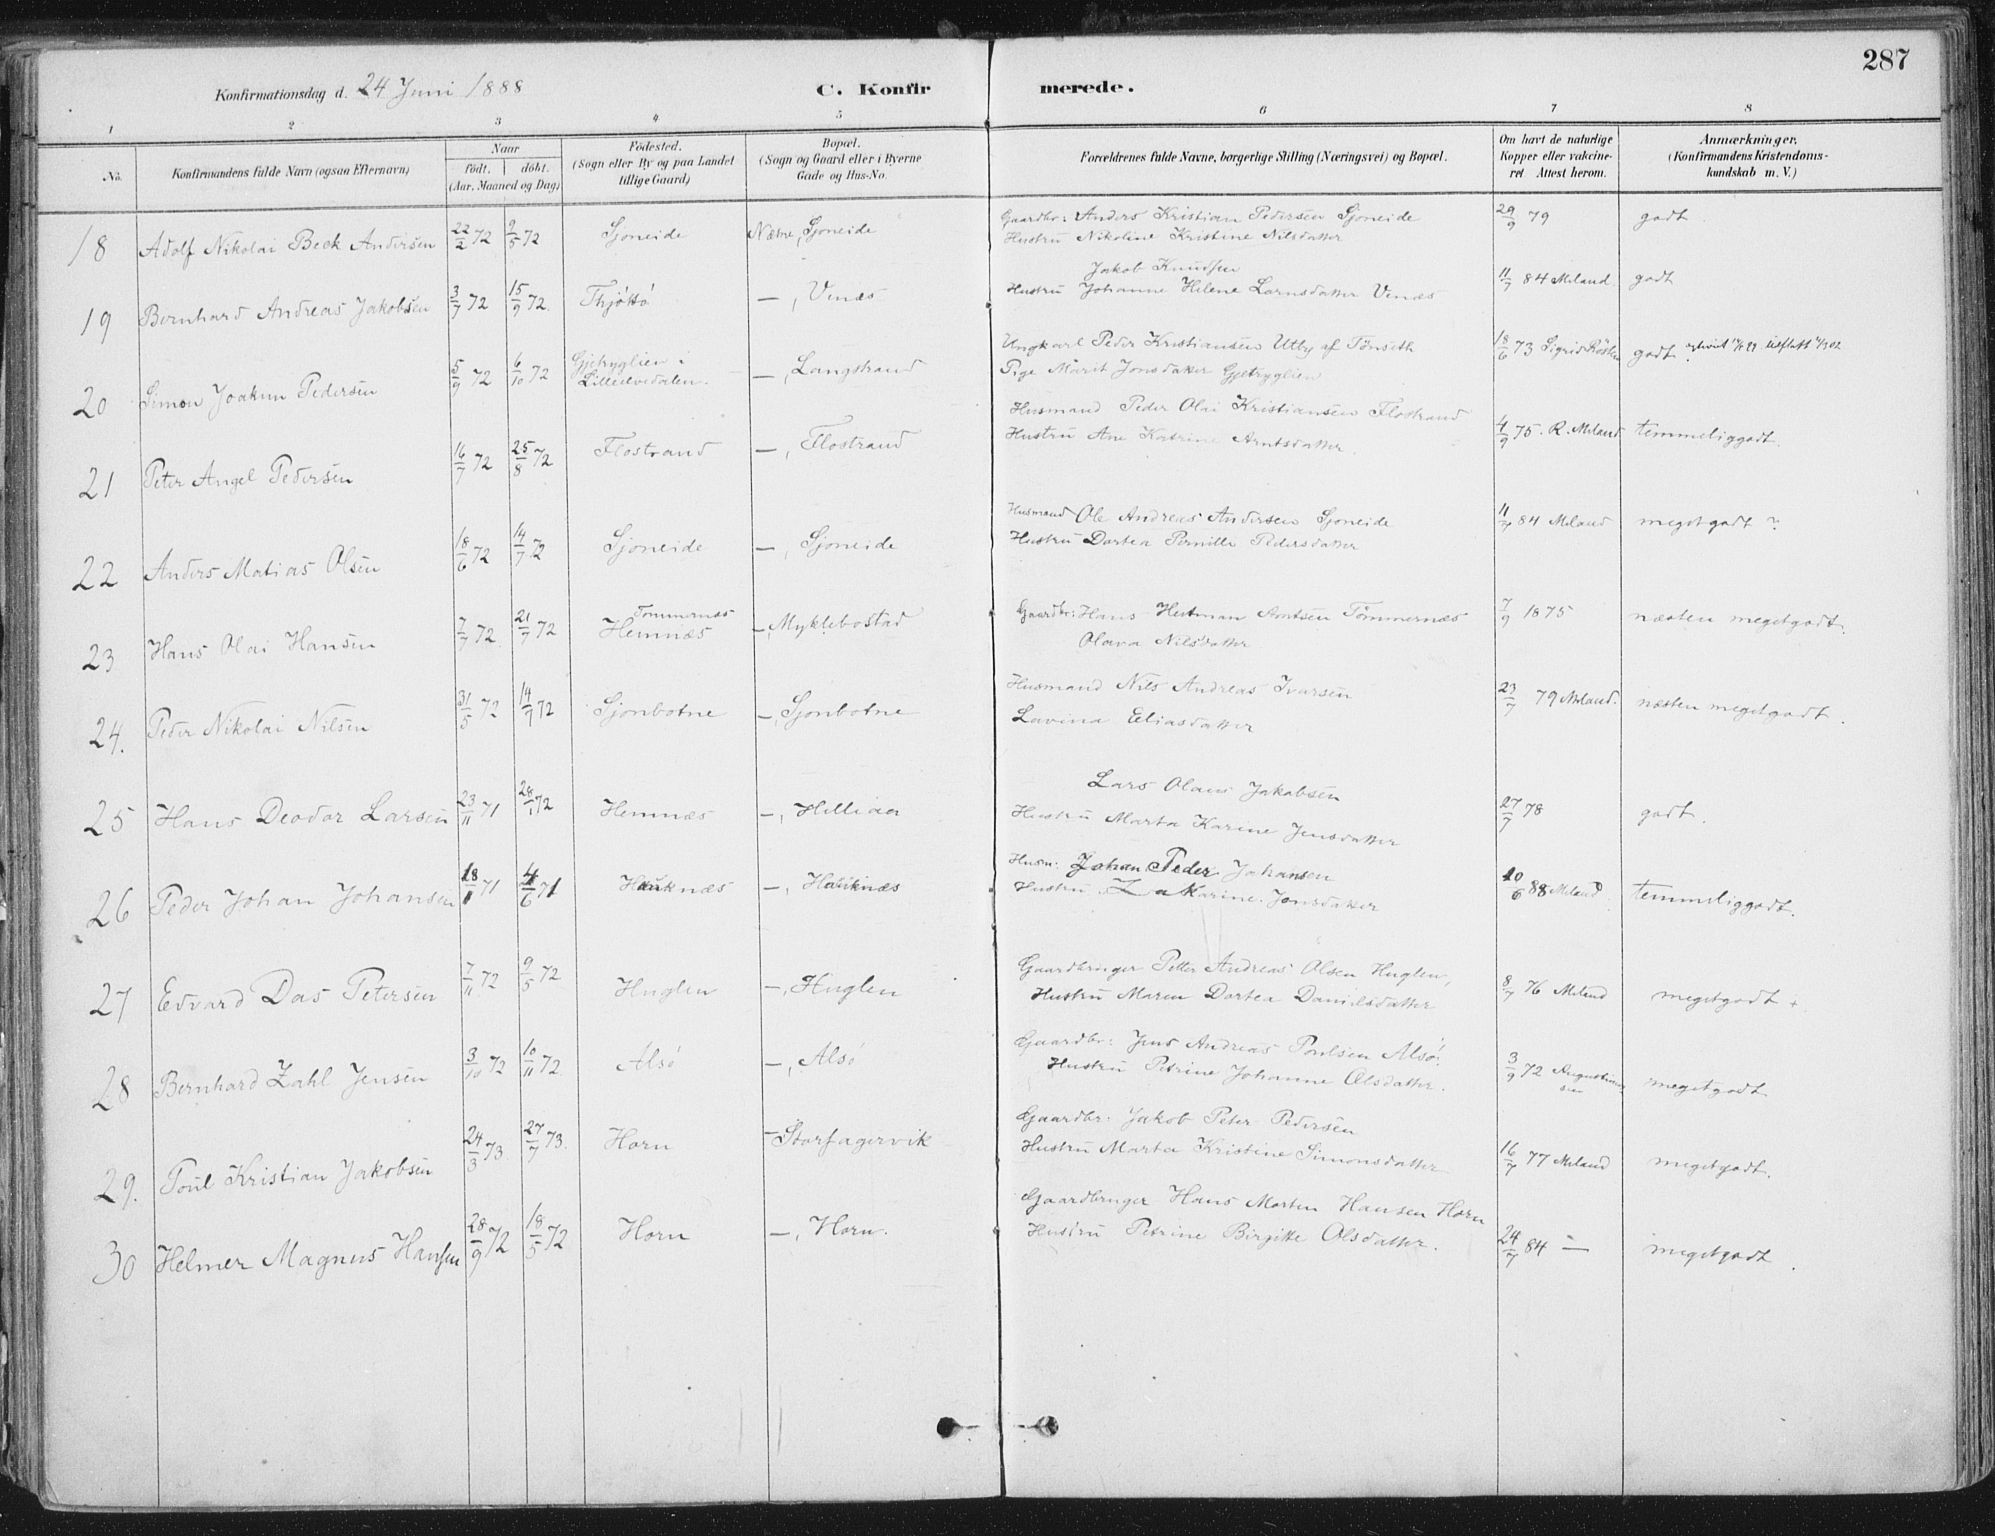 287
Konfirmationsdag d. 24 Juni 1888
C. Konfirmerede.
1 2 3 4 5 6 7 8
No. Konfirmandens fulde Navn (ogsaa Efternavn) Naar födt. döbt. (Aar, Maaned og Dag) Födested. (Sogn eller By og paa Landet tillige Gaard) Bopæl. (Sogn og Gaard eller i Byerne Gade og Hus-No. Forældrenes fulde Navne, borgerlige Stilling (Næringsvei) og Bopæl. Om havt de naturlige Kopper eller vakcineret Attest herom. Anmærkninger, (Konfirmandens Kristendomskundskab m. V.)
18 Adolf Nikolai Beck Andersen 22/2 72 9/5 72 Sjoneide Næsne, Sjoneide Gaardbr: Anders Kristian Pedersen Sjoneide 29/9 79 godt
Hustru Nikoline Kristine Nilsdatter
19 Bernhard Andreas Jakobsen 3/7 72 15/9 72. Thjöttö —, Venæs Jakob Knudsen 11/7 84 Meland godt
Hustru Johanne Helene Larnsdatter Venæs
20 Simon Joakim Pedersen 5/9 72 6/10 72 Gjetryglien i Lilleelvedalen. —, Langstrand Ungkarl Peder Kristiansen Utby af Tönseth 18/6 73 Sigrid godt
Pige Marit Jonsdatter Gjetryglien
21 Peter Angel Pedersen 16/7 72 25/8 72 Flostrand —, Flostrand Husmand Peder Olai Kristiansen Flostrand 4/9 75. R. Meland temmeliggodt.
Hustru Ane Katrine Arntsdatter.
22 Anders Matias Olsen 18/6 72 14/7 72 Sjoneide —, Sjoneide Husmand Ole Andreas Andersen Sjoneide 11/7 84 Meland megetgodt ?
Hustru Dortea Pernille Pedersdatter
23 Hans Olai Hansen 7/7 72. 21/7 72 Tommernæs Hemnæs —, Myklebostad Gaardbr: Hans Arntsen Tömmernæs 7/9 1875 næsten megetgodt.
Olava Nilsdatter
24. Peder Nikolai Nilsen 31/5 72 14/7 72 Sjonbotne —, Sjonbotne Husmand Nils Andreas Ivarsen 23/7 79 Meland. næsten megetgodt.
Lavina Eliasdatter
25 Hans Deodor Larsen 23/11 71 28/1 72 Hemnæs —, Helliaa Lars Olaus Jakobsen 27/7 78 godt.
Hustru Marta Karine Jensdatter
26 Peder Johan Johansen 71 4/6 71 Hauknæs —, Hauknæs Husm: Johan Peder Johansen 10/6 88 Meland temmeliggodt.
Hustru Karine Jonsdatter
27 Edvard Das Petersen 7/11 72 9/5 72 Huglen —, Huglen Gaardbruger Petter Andreas Olsen Huglen, 8/7 76 Meland megetgodt +
Hustru Maren Dortea Danielsdatter
28 Bernhard Zahl Jensen 3/10 72 10/11 72 Alsö —, Alsö Gaardbr: Jens Andreas Poulsen Alsö. 3/9 72 Augustinussen megetgodt
Hustru Petrine Johanne Olsdatter.
29. Poul Kristian Jakobsen 24/3 73. 27/7 73. Horn — Storfagervik Gaardbr. Jakob Peter Pedersen 16/7 77 Meland megetgodt.
Hustru Marta Kristine Simonsdatter
30 Helmer Magnus Hansen 28/9 72 18/5 72 Horn —, Horn. Gaardbruger Hans Morten Hansen Horn 24/7 84 — megetgodt.
Hustru Petrine Birgitte Olsdatter.